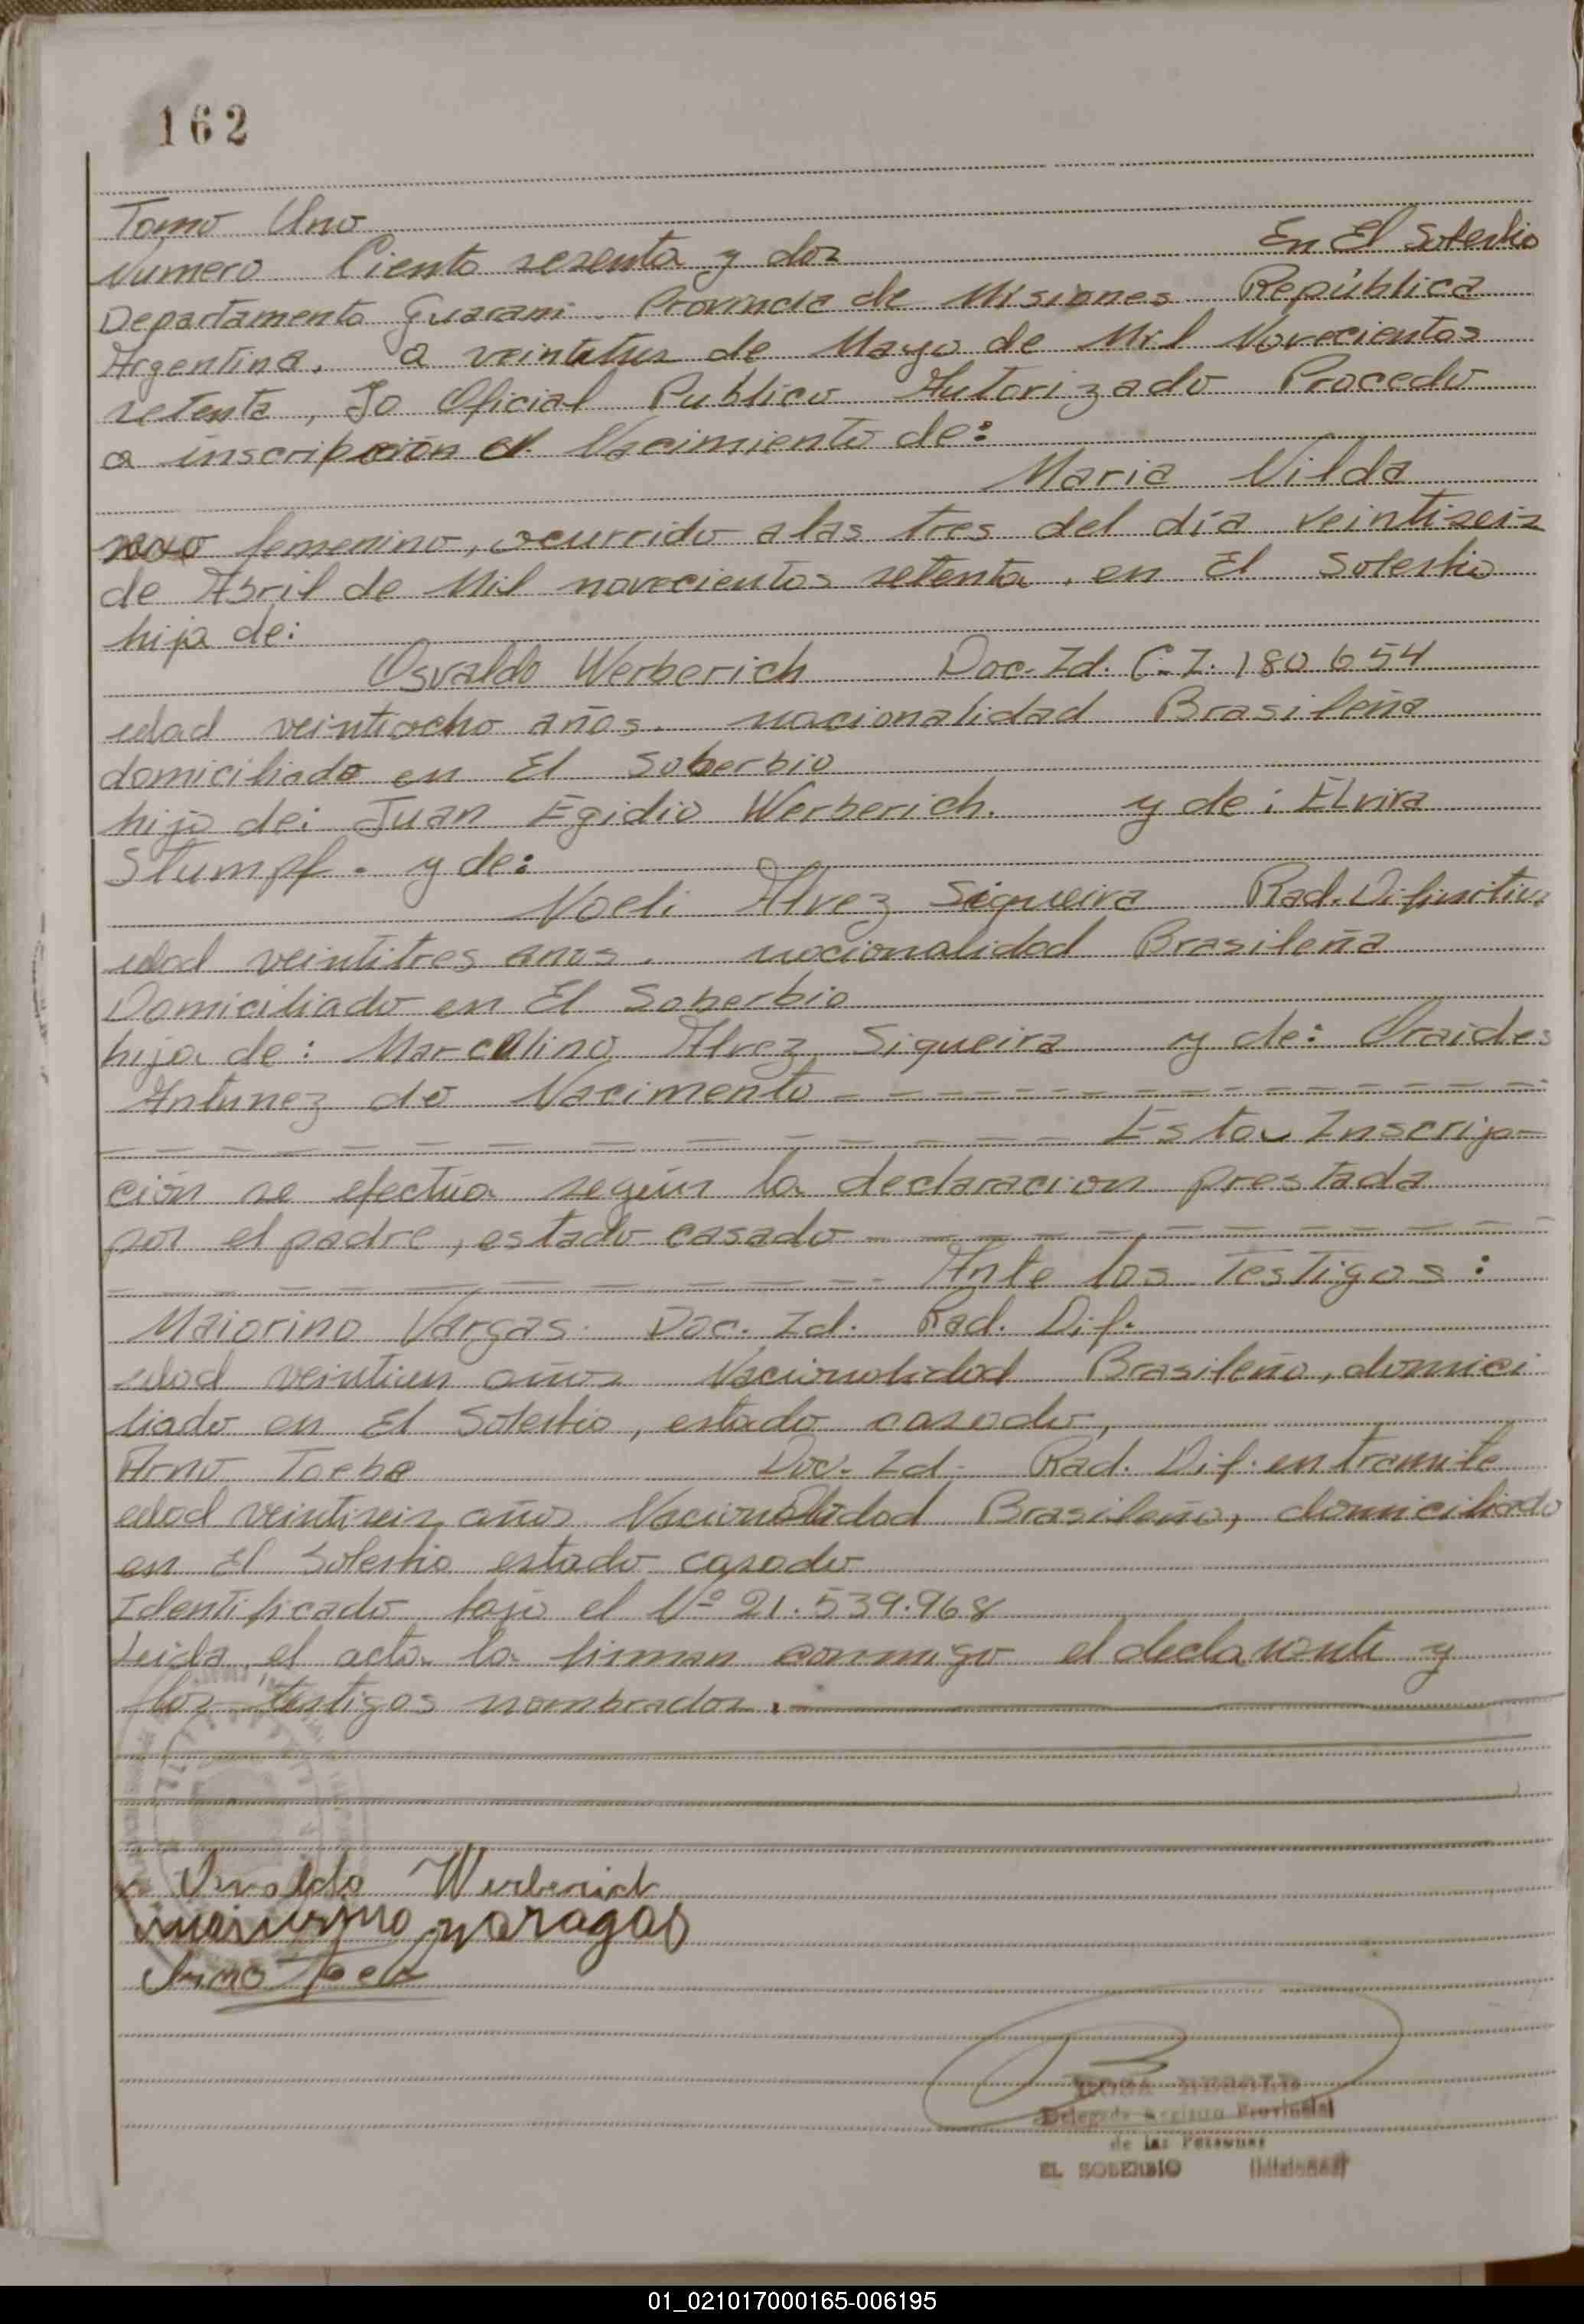 162
Tomo Uno
En El Soberbio
Numero Ciento sesenta y dos
Departamento Guarani. Provincia de Misiones República
Argentina, a veintitres de Mayo de Mil Novecientos
setenta, Yo Oficial Publico Autorizado Procedo
a inscripcion el Nacimiento de:
Maria Nilda
sexo femenino, ocurrido a las tres del día veintiseis
de Abril de Mil novecientos setenta, en El Soberbio
hija de:
Osvaldo Werberich Doc. Id. C.I. 180654
edad veintiocho años. nacionalidad Brasileña
domiciliado en El Soberbio
hijo de: Juan Egidio Werberich. y de: Elvira
Stumpf. y de:
Noeli Alvez Siqueira Rad. Difinitiva
edad veintitres anos. nacionalidad Brasileña
Domiciliado en El Soberbio
hija de: Marcolino Alvez Siqueira y de: Oraides
Antunez do Nacimento
Esta Inscrip-
ción se efectúa según la declaracion prestada
por el padre, estado casado
Ante los Testigos:
Maiorino Vargas. Doc. Id. Rad. Dif.
edad veintiun años Nacionalidad Brasileño, domici
liado en El Soberbio, estado casado,
Arno Toebe Doc. Id. Rad. Dif. en tramite
edad veintiseis años Nacionalidad Brasileño, domiciliado
en El Soberbio estado casado
Identificado bajo el Nº 21.539.968
Leida el acta la firman conmigo el declarante y
los testigos nombrados.
Osvaldo Werberich
maiorino varagas
Arno Toebe
Delegada Registro Provincial
de las Personas
EL SOBERBIO (Misiones)
01_021017000165-006195